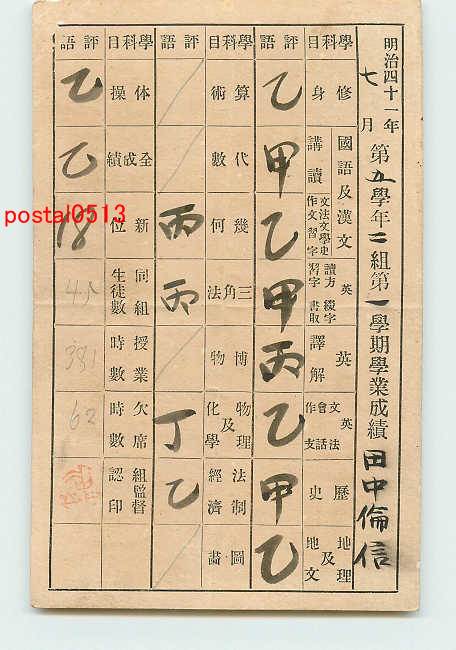 明治四十一年七月
第五學年二組第一學期學業成績 田中倫信
學科目 評語
修身 乙
國語及漢文 講讀 甲
文法文學史 作文習字 乙
英 讀方 綴字 習字 書取 甲
英 譯解 丙
英 文法 會話 作文 乙
歷史 甲
地理及地文 乙
學科目 評語
算術
代數
幾何 丙
三角法 丙
博物
物理及化學 丁
法制經濟 乙
圖畫
學科目 評語
体操 乙
全成績 乙
新位 18
同組生徒數 45
授業時數 381
欠席時數 62
組監督認印
postal0513